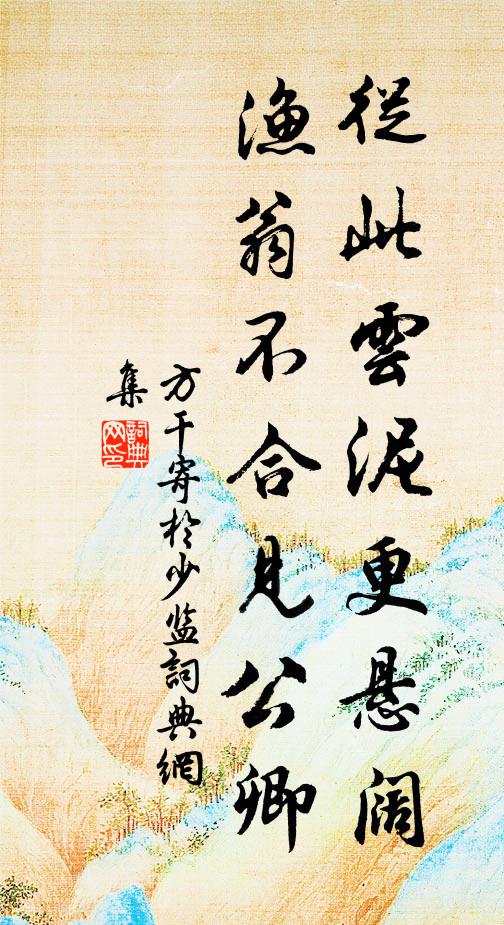 從此雲泥更悬阔
漁翁不合見公卿
方干寄於少监詞典網
集
詞典
网印